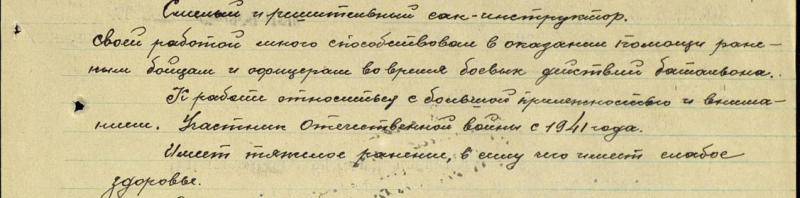 Смелый и решительный сан-инструктор.
своей работой много способствовал в оказании помощи ране-
ным бойцам и офицерам во время боевых действий батальона.
К работе относиться с большой прилежностью и внима-
нием. Участник Отечественной войны с 1941 года.
Имеет тяжелое ранение, в силу чего имеет слабое
здоровье.